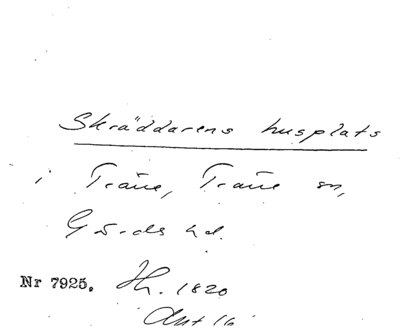 Skräddarens husplats
i Träne, Träne sn,
Gärds hd.
Nr 7925. Hh. 1820
Ant 16